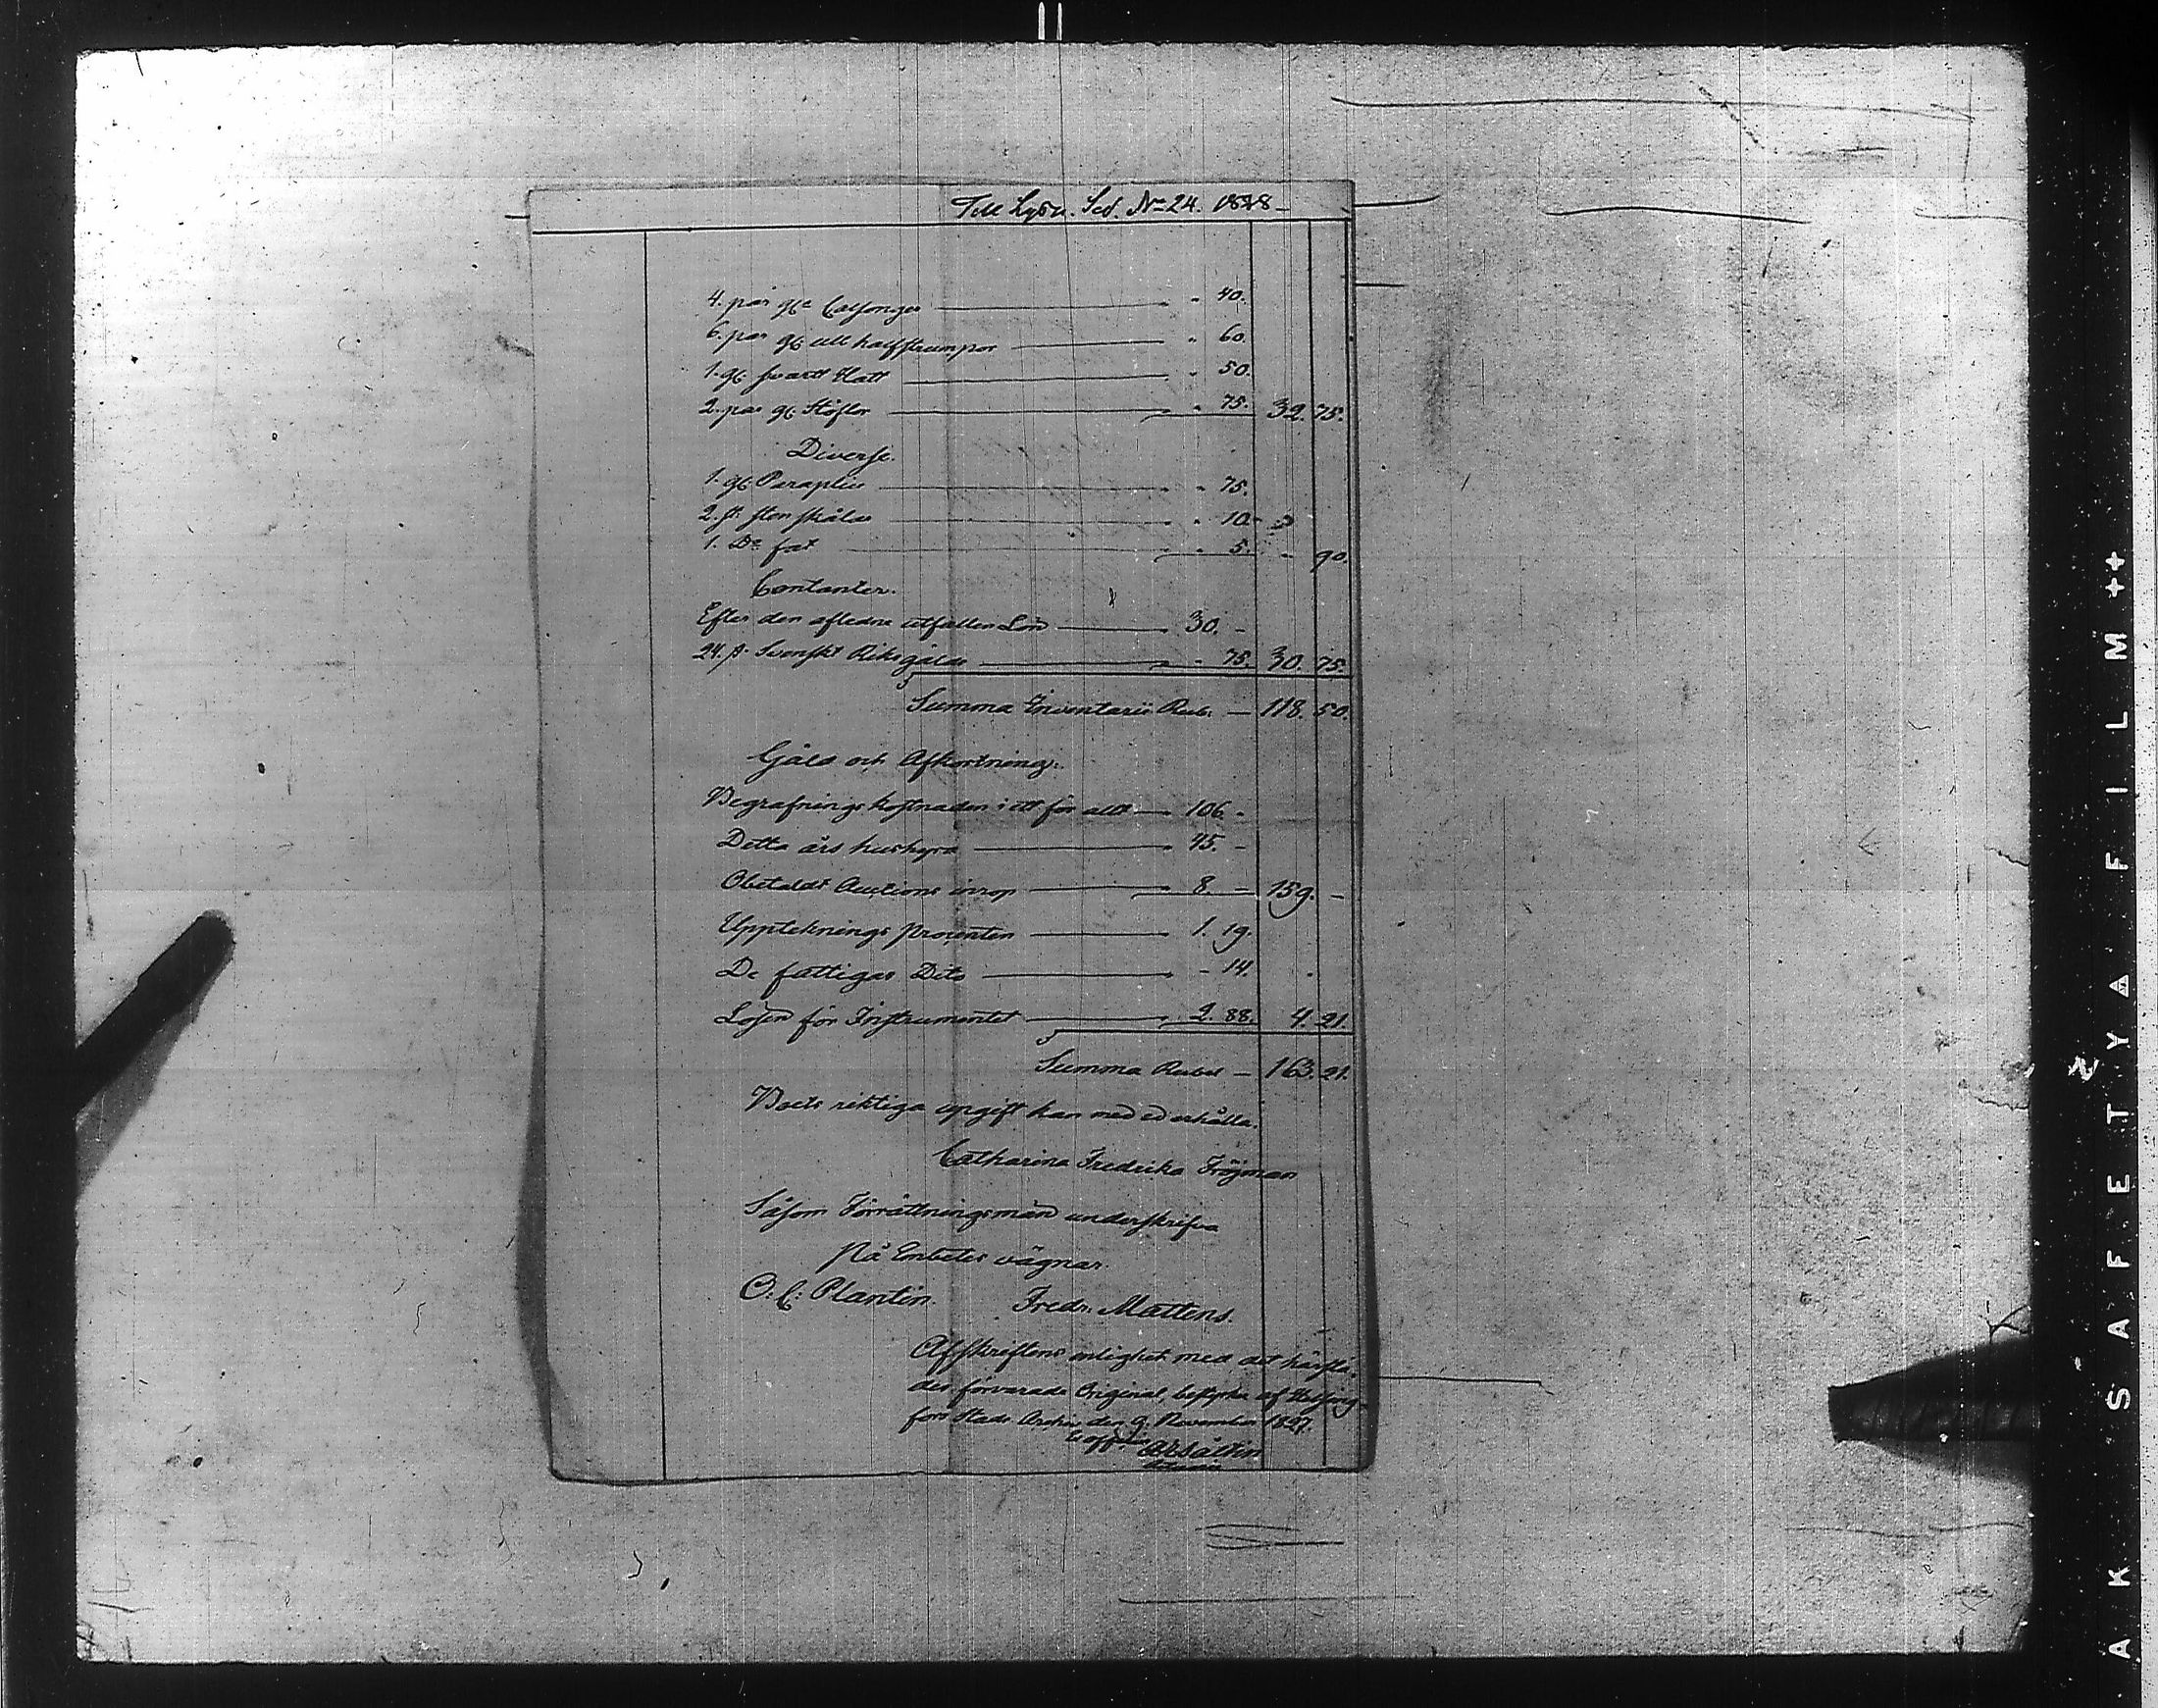 Till Lysn. Sed. No 24. 1828
4. par gla Calsonger " 40.
6. par gl. ull halfstrumpor " 60.
1. gl. svart Hatt " 50.
2. par gl. Stöflor " 75. 32. 75.
Diverse.
1. gl. Paraplui " 75.
2. st. sten skålar " 10.
1. Do fat " 5. - 90.
Contanter.
Efter den aflidne utfallen Lön 30. -
24. s. Svenskt Riksgälds " 75. 30. 75.
Summa Inventarii Rub. - 118. 50.
Gäld och Afkortning.
Begrafnings kostnaden i ett för allt 106. -
Detta års hushyra 45. -
Obetaldt Auctions inrop 8. - 159. -
Uppteknings procenten 1. 19.
De fattigas Dito - 14.
Lösen för Instrumentet 2. 88. 4. 21.
Summa Rubel - 163. 21.
Boets riktiga upgift kan med ed erhålla.
Catharina Fredrika Fröjman
Såsom Förrättningsmän underskrifva
På Embetes vägnar.
O: C: Plantin. Fredr. Mattens.
Afskriftens enlighet med det härstä-
des förvarade Original, bestyrka af Helsing-
fors Stads Archiv den 9. November 1897.
Ex officio